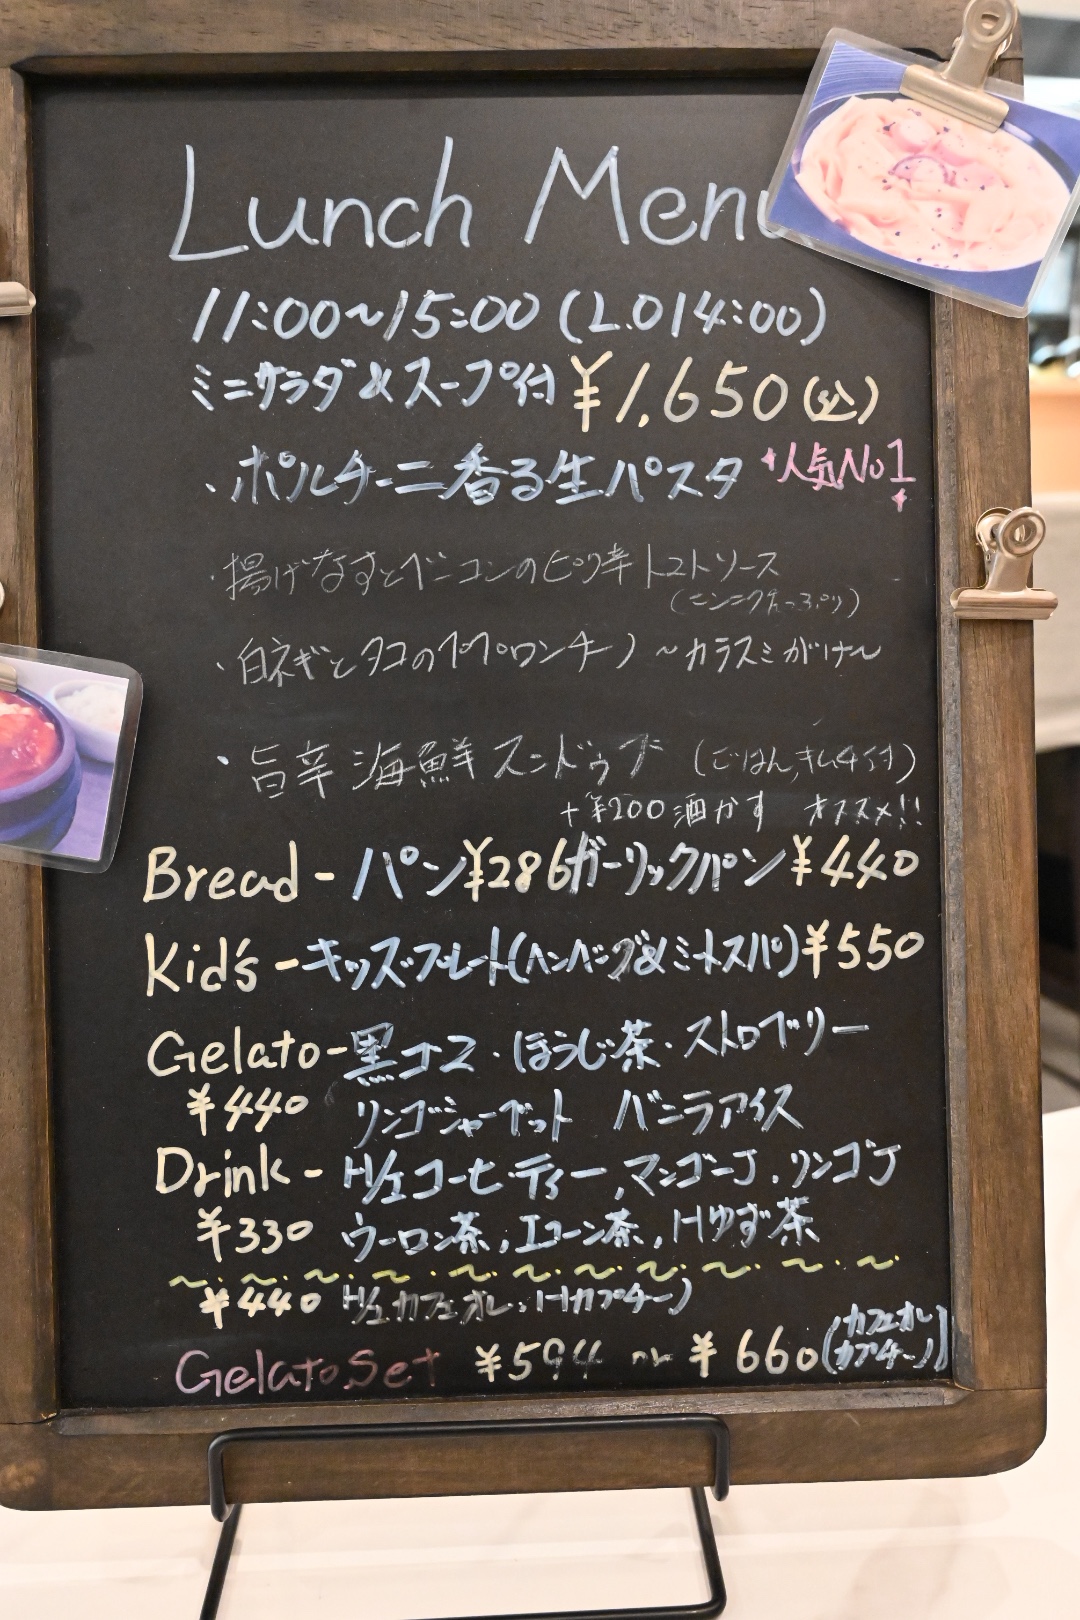 Lunch Menu
11:00~15:00 (L.O14:00)
ミニサラダ&スープ付 ¥1,650(込)
・ポルチーニ香る生パスタ 人気No1
・揚げなすとベーコンのピリ辛トマトソース
(ニンニクたっぷり)
・白ネギとタコのペペロンチーノ ~カラスミがけ~
・旨辛海鮮スンドゥブ (ごはん,キムチ付)
+¥200 オススメ!!
Bread - パン¥286ガーリックパン¥440
Kid's - キッズプレート(ハンバーグ&ミートスパ)¥550
Gelato - 黒ゴマ・ほうじ茶・ストロベリー
¥440 リンゴシャーベット バニラアイス
Drink - H/Iコーヒー・ティー,マンゴーJ,リンゴJ
¥330 ウーロン茶,コーン茶,Hゆず茶
¥440 H/Iカフェオレ,Hカプチーノ
Gelato Set ¥594 or ¥660(カフェオレ
カプチーノ)